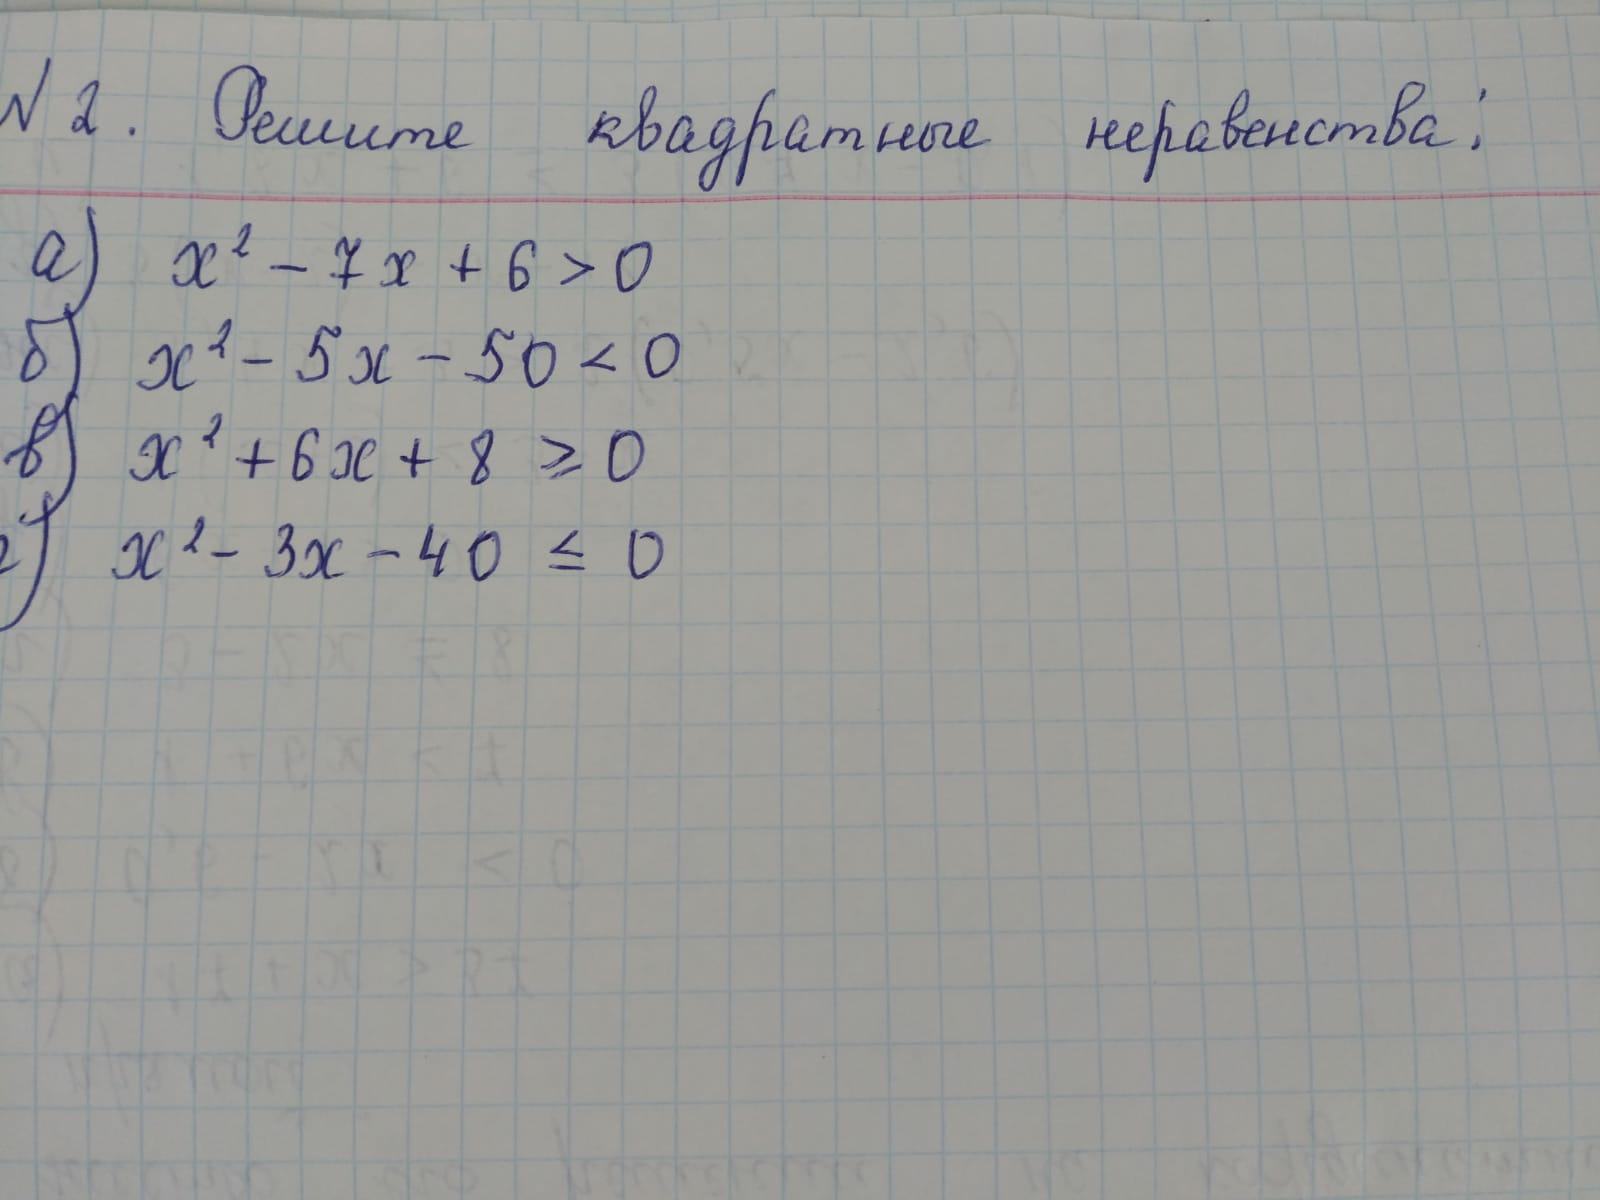 N 2. Решите квадратные неравенства:
а) x² - 7x + 6 > 0
б) x² - 5x - 50 < 0
в) x² + 6x + 8 ≥ 0
г) x² - 3x - 40 ≤ 0